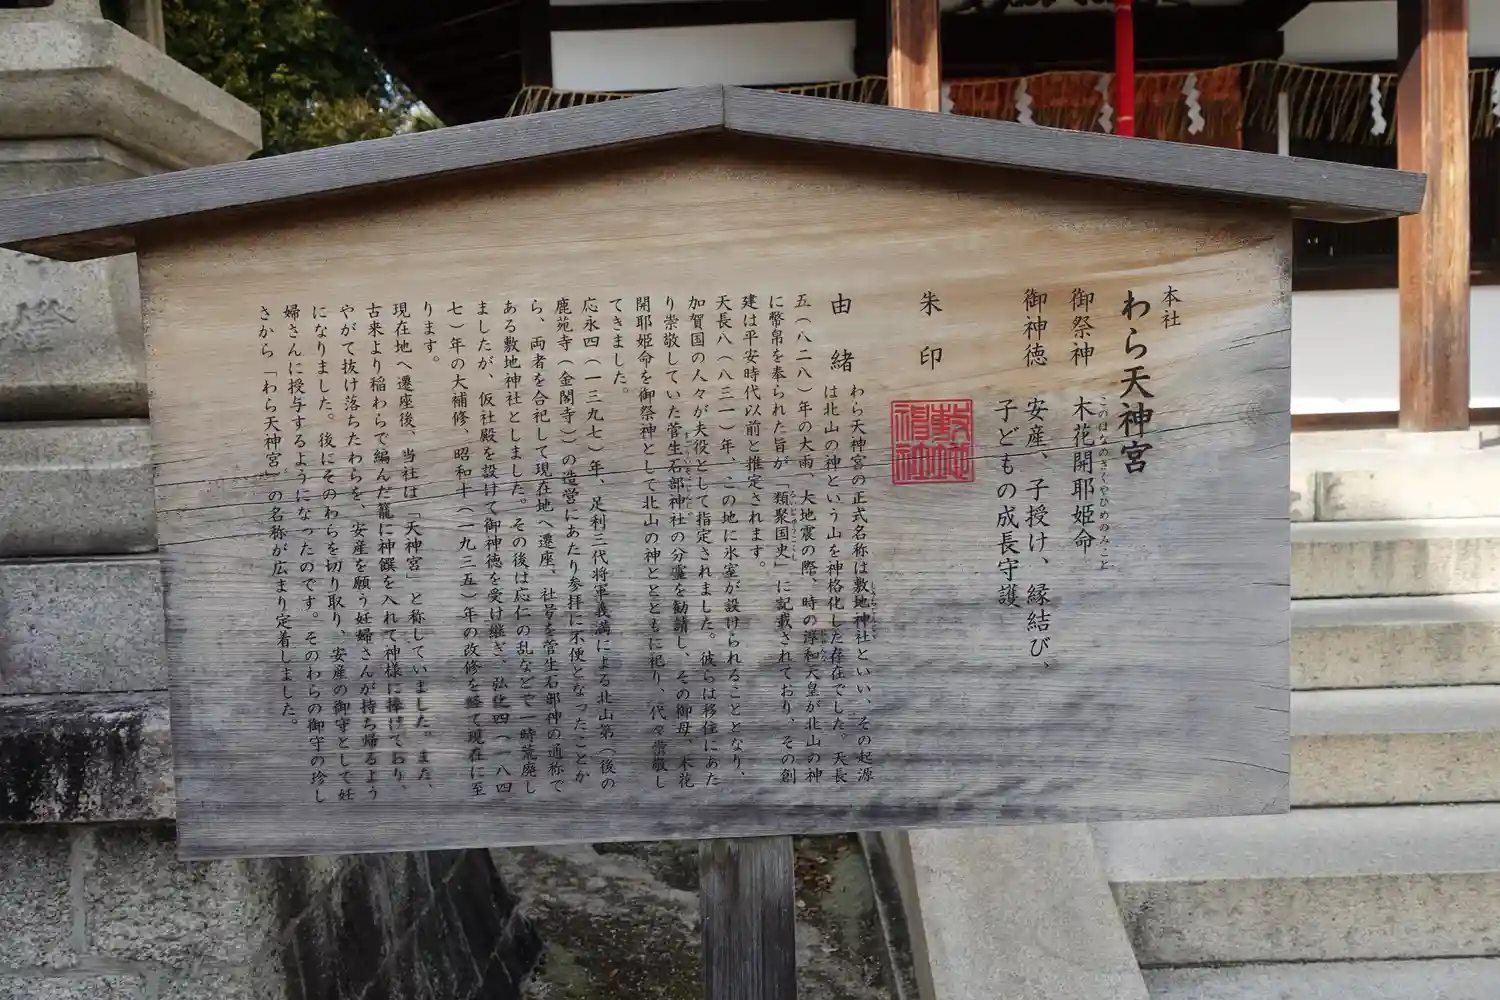 本社
わら天神宮
御祭神　木花開耶姫命
このはなのさくやひめのみこと
御神徳　安産、子授け、縁結び、
子どもの成長守護
朱印
敷地神社
由緒
わら天神宮の正式名称は敷地神社といい、その起源
は北山の神という山を神格化した存在でした。天長
五（八二八）年の大雨、大地震の際、時の淳和天皇が北山の神
に幣帛を奉られた旨が「類聚国史」に記載されており、その創
建は平安時代以前と推定されます。
天長八（八三一）年、この地に氷室が設けられることとなり、
加賀国の人々が夫役として指定されました。彼らは移住にあた
り崇敬していた菅生石部神社の分霊を勧請し、その御母、木花
開耶姫命を御祭神として北山の神とともに祀り、代々崇敬し
てきました。
応永四（一三九七）年、足利三代将軍義満による北山第（後の
鹿苑寺（金閣寺））の造営にあたり参拝に不便となったことか
ら、両者を合祀して現在地へ遷座、社号を菅生石部神の通称で
ある敷地神社としました。その後は応仁の乱などで一時荒廃し
ましたが、仮社殿を設けて御神徳を受け継ぎ、弘化四（一八四
七）年の大補修、昭和十（一九三五）年の改修を経て現在に至
ります。
現在地へ遷座後、当社は「天神宮」と称していました。また、
古来より稲わらで編んだ籠に神饌を入れて神様に捧げており、
やがて抜け落ちたわらを、安産を願う妊婦さんが持ち帰るよう
になりました。後にそのわらを切り取り、安産の御守として妊
婦さんに授与するようになったのです。そのわらの御守の珍し
さから「わら天神宮」の名称が広まり定着しました。